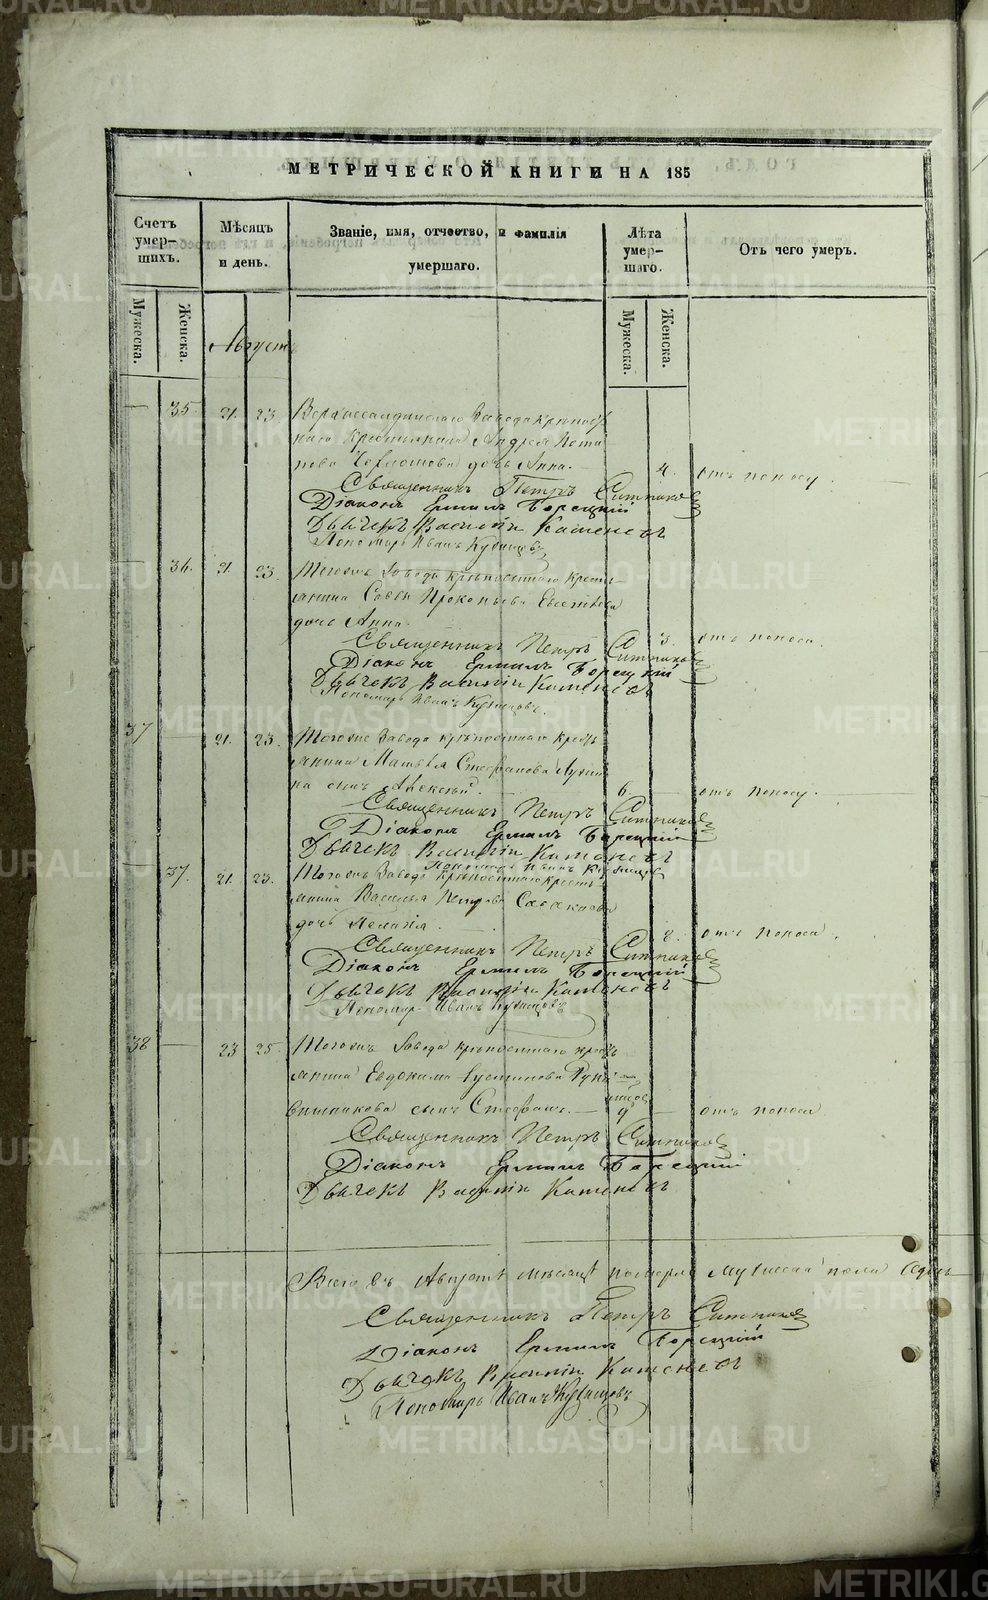 METRIKI.GASO-URAL.RU
МЕТРИЧЕСКОЙ КНИГИ НА 185
Счетъ умер-шихъ.
Мѣсяцъ и день.
Званіе, имя, отчество, и фамилія умершаго.
Лѣта умер-шаго.
Отъ чего умеръ.
Мужеска.
Женска.
Августъ
Мужеска.
Женска.
— 35 21. 23. завода
крестьянина Андрея
дочь Анна. — 4. отъ поносу
Священникъ Петръ Ситниковъ
Діаконъ Ермилъ Борецкій
Дьячекъ Василій Каменевъ
Пономарь Иванъ
— 36. 21. 23. Тогожъ завода крѣпостнаго кресть-
янина Саввы Прокопьева
дочь Анна. 3. отъ поноса
Священникъ Петръ Ситниковъ
Діаконъ Ермилъ Борецкій
Дьячекъ Василій Каменевъ
Пономарь Иванъ
37 21. 23. Тогоже завода крѣпостнаго кресть-
янина Матвѣя Стефанова
сынъ Алексѣй. 6 — отъ поносу.
Священникъ Петръ Ситниковъ
Діаконъ Ермилъ Борецкій
Дьячекъ Василій Каменевъ
Пономарь Иванъ
37. 21. 23. Тогожъ завода крѣпостнаго кресть-
янина Василья Петрова
дочь Пелагія. отъ поноса.
Священникъ Петръ Ситниковъ
Діаконъ Ермилъ Борецкій
Дьячекъ Василій Каменевъ
Пономарь Иванъ
38 — 23 25. Тогожъ завода крѣпостнаго кресть-
янина Евдокима
сынъ Стефанъ. — 9 — отъ поноса
Священникъ Петръ Ситниковъ
Діаконъ Ермилъ Борецкій
Дьячекъ Василій Каменевъ
Всего въ Августѣ мѣсяцѣ померло мужеска пола
Священникъ Петръ Ситниковъ
Діаконъ Ермилъ Борецкій
Дьячекъ Василій Каменевъ
Пономарь Иванъ